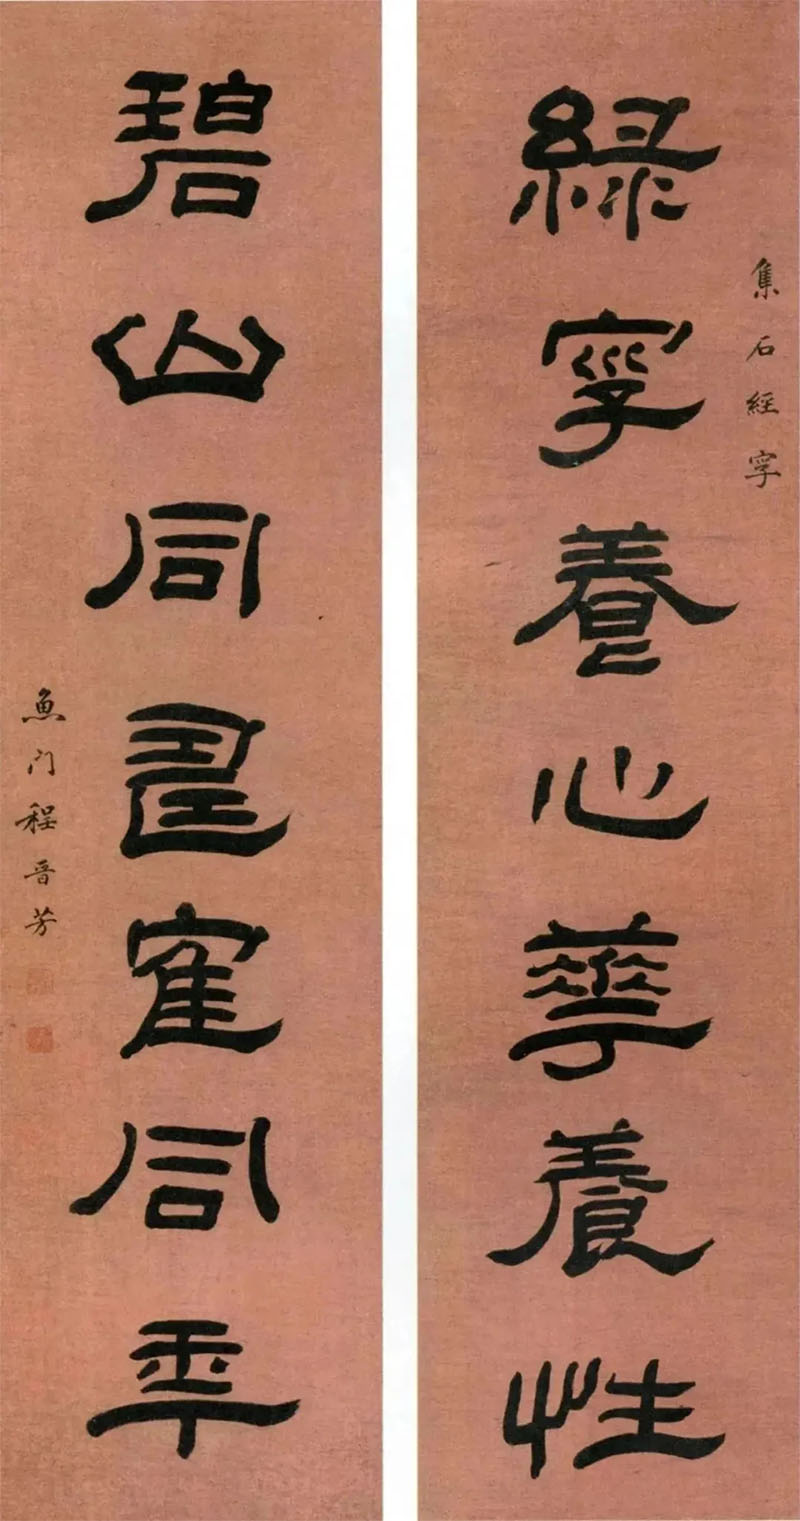 集石經字
綠字養心華養性
碧山同壽寉同年
魚門程晋芳